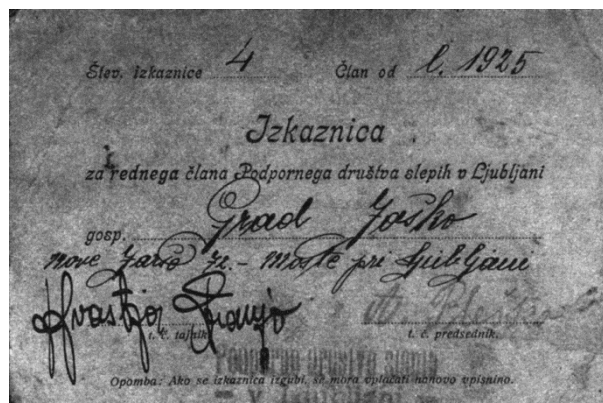 Štev. izkaznice 4 Član od l. 1925
Izkaznica
za rednega člana Podpornega društva slepih v Ljubljani
gosp. Grad Joško
Nove Jarše 72. - Moste pri Ljubljani
Franjo
t. č. tajnik. t. č. predsednik.
Podporno društvo slepih
Opomba: Ako se izkaznica izgubi, se mora vplačati nanovo vpisnino.